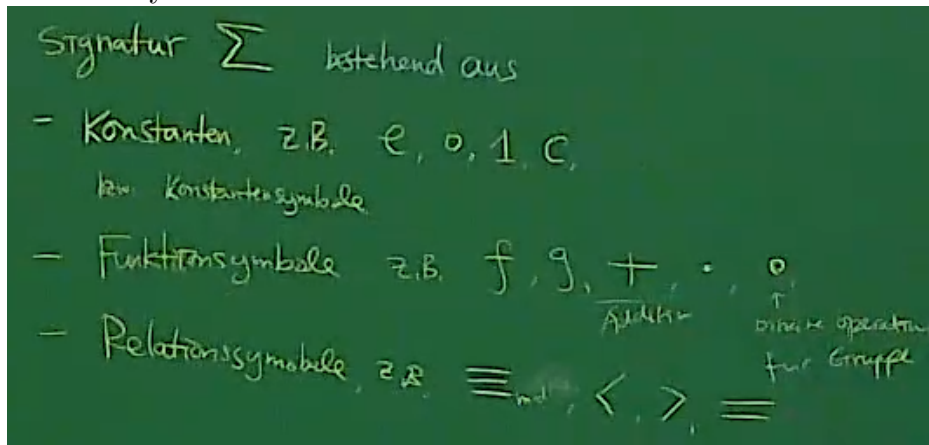 Signatur Σ bestehend aus
- Konstanten, z.B. e, 0, 1, c,
bzw. Konstantensymbole
- Funktionsymbole z.B. f, g, +, ·, ∘
Addition
↑
binäre operation
für Gruppe
- Relationssymobole, z.B. ≡, <, >, =